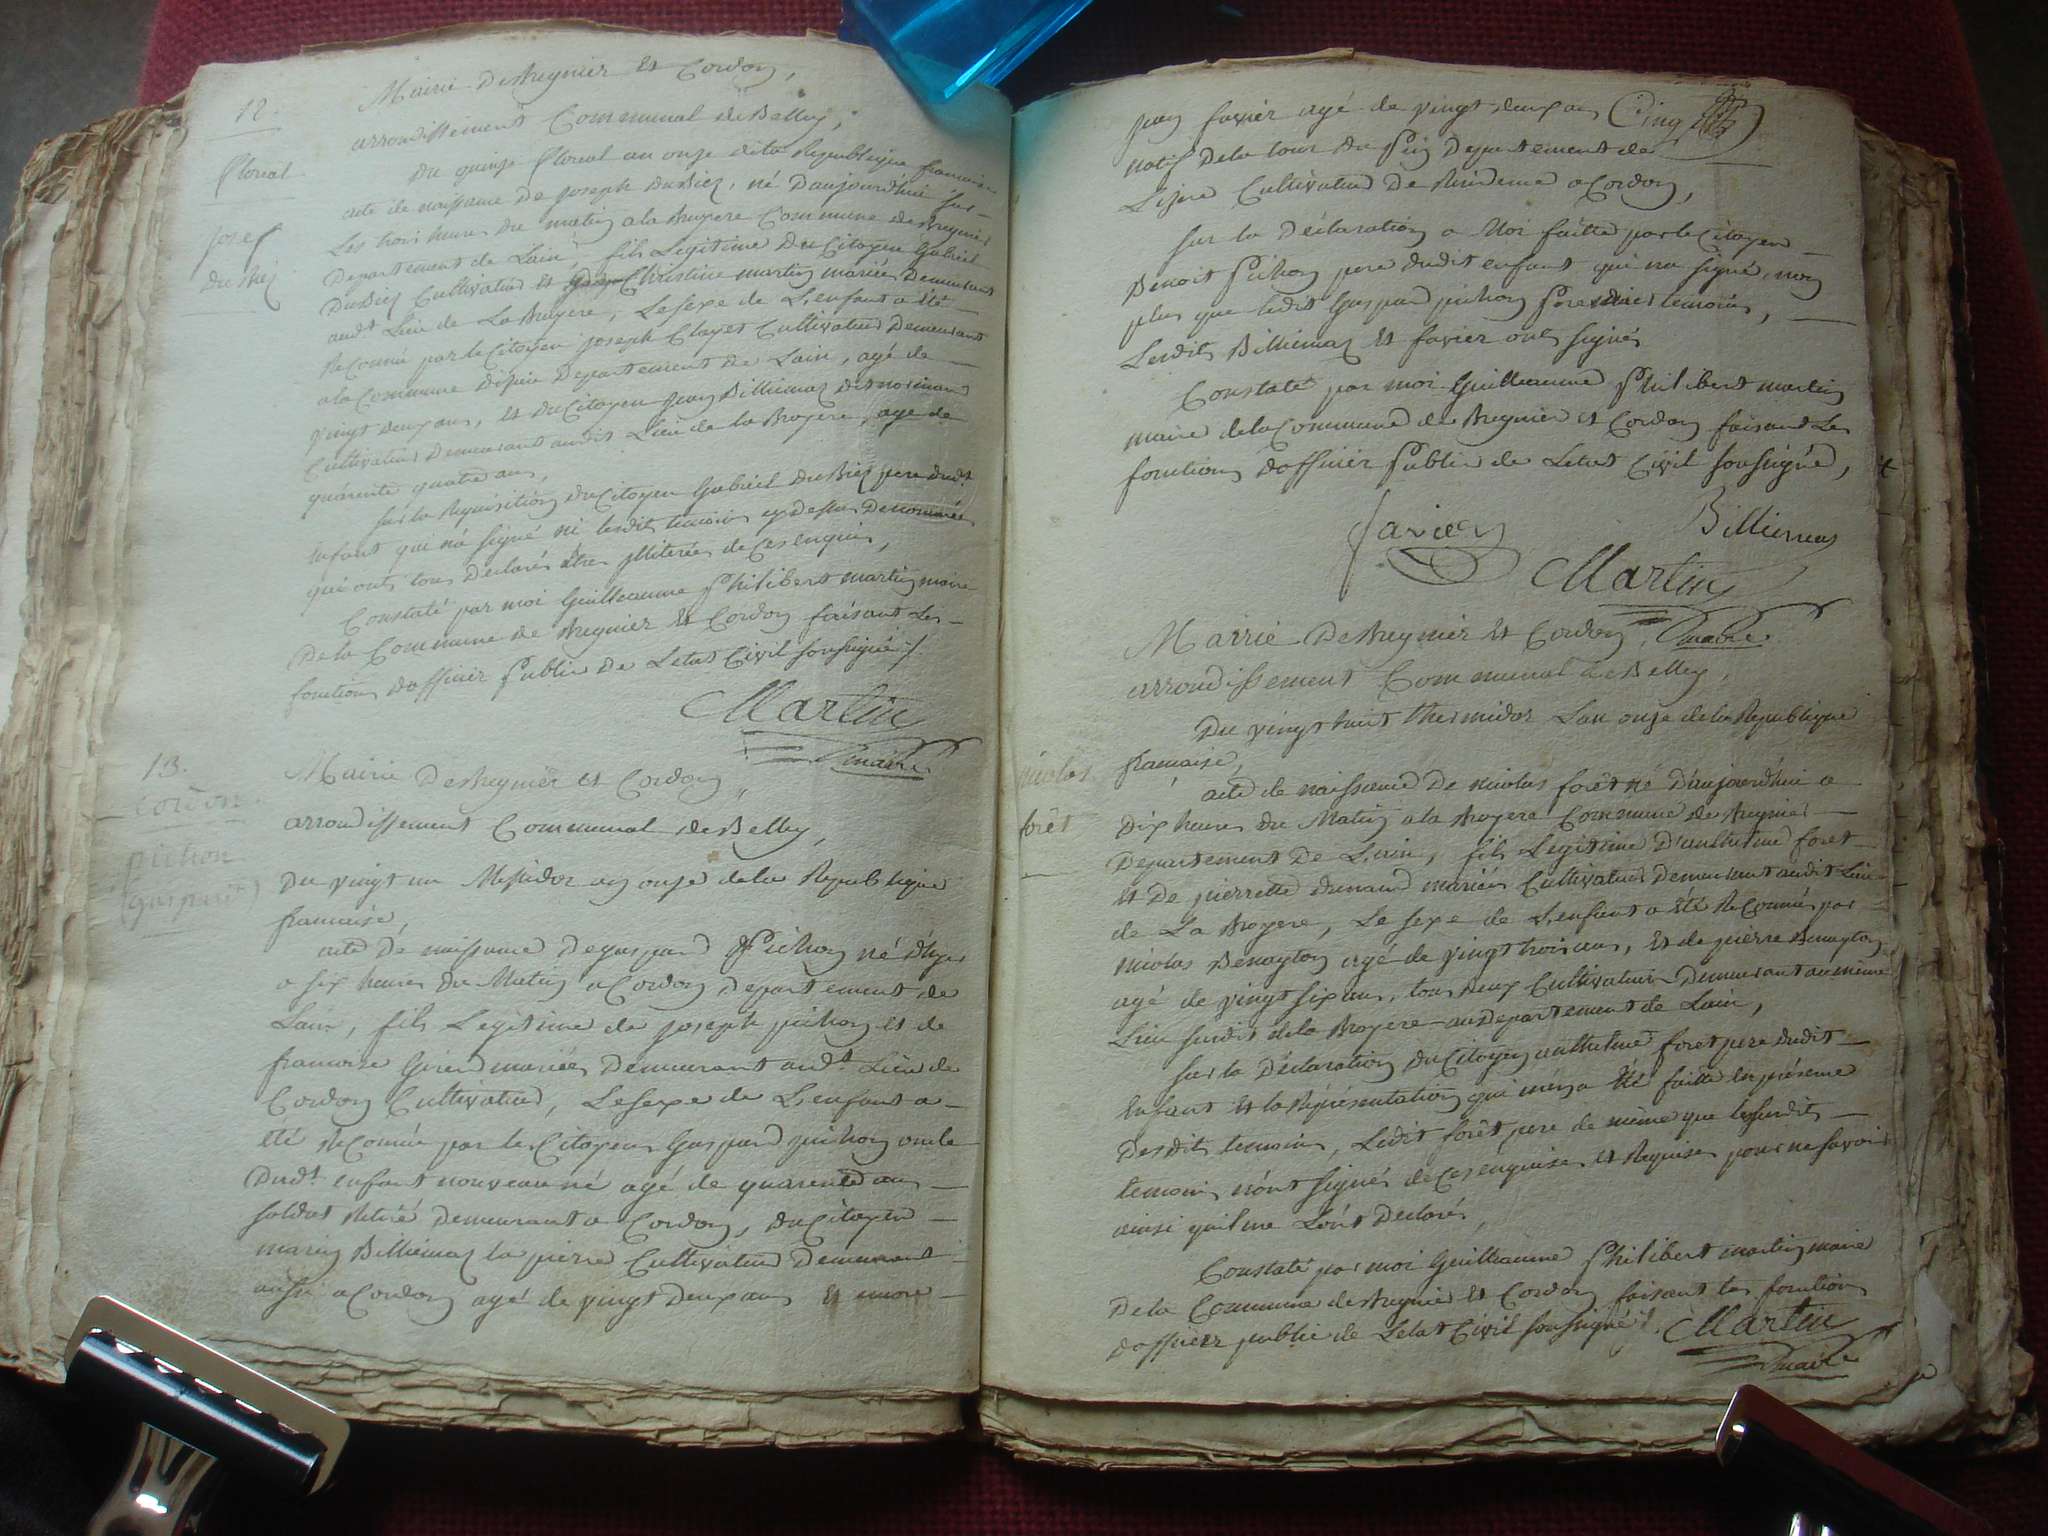 12.
Mairie De Bregnier Et Cordon,
arrondissement Communal de Belley,
floreal
Du quinze floreal an onze de la Republique francaise
acte de naissance de joseph Dubiez, né D'aujourdhui sur
josef
Dubiez
Les trois heures du matin a la Bruyere Commune de Bregnier
Departement de Lain, fils Legitime Du Citoyen Gabriel
Dubiez Cultivateur et Christine martin mariés Demeurant
audt Lieu de La Bruyere, Le sexe de L'enfant a été
Reconnu par le Citoyen joseph Clayet Cultivateur Demeurant
a la Commune Departement de Lain, agé de
vingt deux ans, et du Citoyen jean Billiemaz dit normand
Cultivateur Demeurant audit Lieu de la Broyere, age de
quarente quatre ans,
sur la Requisition du Citoyen Gabriel Dubiez pere dudt
enfant qui na signé ni lesdits temoins cy Dessus Denommés
qui ont tous Declarés être illiterés de Ces enquis,
Constaté par moi Guilleaume Philibert martin maire
De la Commune de Bregnier Et Cordon faisant Les
fonctions d'officier Public De Letat Civil soussigné /.
Martin
maire
13.
Cordon.
pichon
(gaspard)
Mairie De Bregnier et Cordon,
arrondissement Communal de Belley,
Du vingt un Messidor an onze de la Republique
francaise,
acte de naissance de gaspard Pichon né d'hyer
a six heures du Matin a Cordon Departement de
Lain, fils Legitime de joseph pichon et de
francoise mariés Demeurant audt Lieu de
Cordon Cultivateur, Le sexe de L'enfant a
été Reconnu par le Citoyen Gaspard pichon oncle
Dudt enfant nouveau né agé de quarente ans
soldat Retiré Demeurant a Cordon, du Citoyen
marin Billiemaz la pierre Cultivateur Demeurant
aussi a Cordon agé de vingt Deux ans Et encore
jean favier agé de vingt cinq
natif De la tour du Pin Departement de
Lizere Cultivateur De Residence a Cordon,
sur la Déclaration a Moi faitte par le Citoyen
Benoit Pichon pere dudit enfant qui na signé, non
plus que ledit Gaspard pichon temoins,
Lesdits Billiemaz et favier ont signés
Constaté par moi Guilleaume Philibert martin
maire de la Commune de Bregnier et Cordon faisant Les
fonctions d'officier Public de Letat Civil soussigné,
favier
Billiemaz
Martin
maire
Mairie De Bregnier Et Cordon,
arrondissement Communal de Belley,
Du vingt huit thermidor Lan onze de la Republique
francaise,
nicolas
forêt
acte de naissance De nicolas forêt né D'aujourdhui a
Dix heures du Matin a la Broyere Commune de Bregnier
Departement De Lain, fils Legitime D'anthelme foret
et De pierrette dunand mariés Cultivateur Demeurant audit Lieu
de La Broyere, Le sexe de L'enfant a été Reconnu par
nicolas Benayton agé de vingt trois ans, et de pierre Benayton
agé de vingt six ans, tous deux Cultivateurs Demeurant au même
Lieu susdit de la Broyere au departement de Lain,
sur la Déclaration du Citoyen anthelme foret pere dudit
enfant et la Représentation qui m'en a été faitte en présence
Desdits temoins, Ledit forêt pere de même que lesdits
temoins n'ont signés de Ces enquis et Requis pour ne savoir
ainsi quil me L'ont Declarés,
Constaté par moi Guilleaume Philibert martin maire
De la Commune de Bregnier Et Cordon faisant les fonctions
d'officier public de Letat Civil soussigné /. Martin
maire